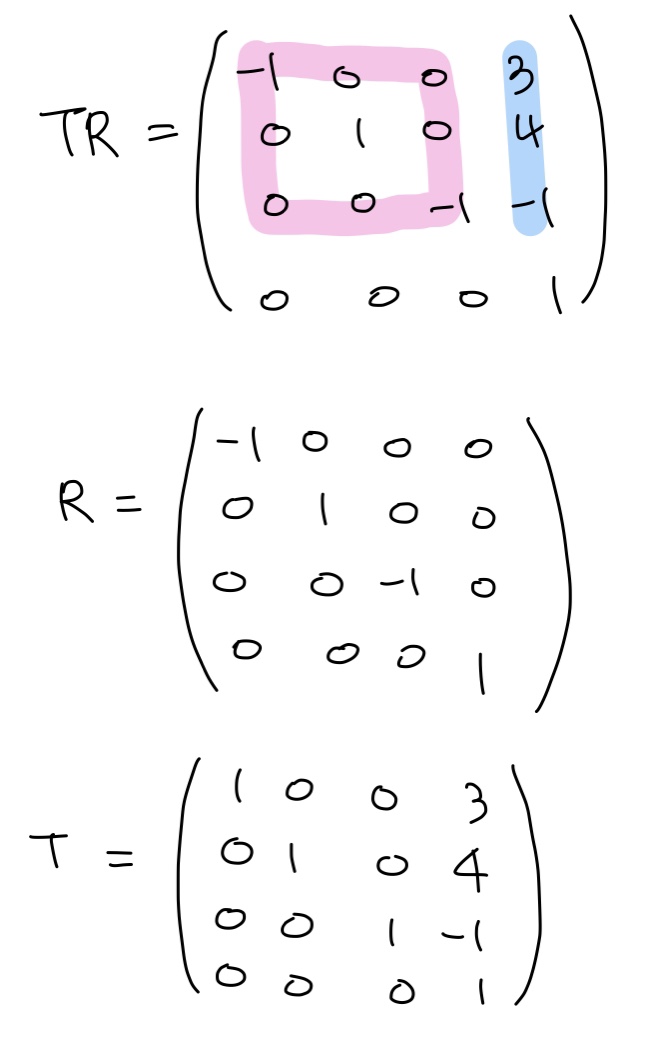 -1 0 0 3
TR = 0 1 0 4
0 0 -1 -1
0 0 0 1
-1 0 0 0
R = 0 1 0 0
0 0 -1 0
0 0 0 1
1 0 0 3
T = 0 1 0 4
0 0 1 -1
0 0 0 1